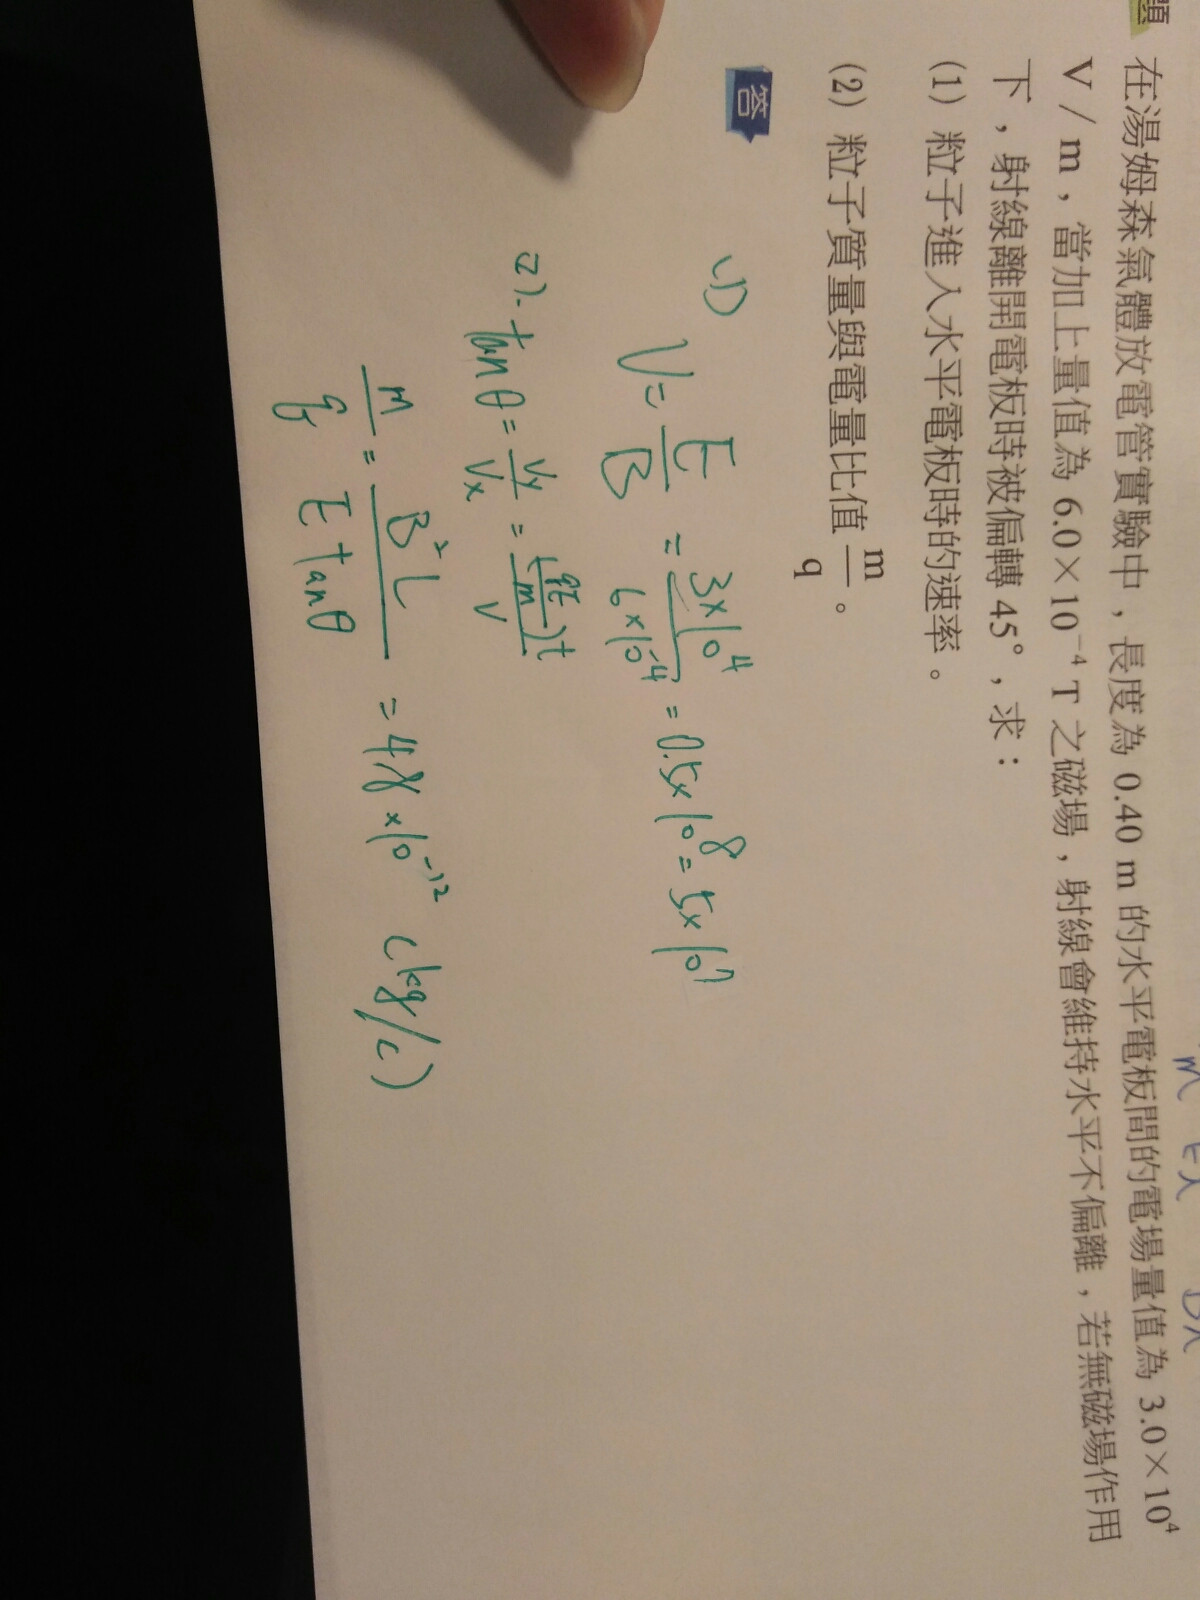 題 在湯姆森氣體放電管實驗中，長度為 0.40 m 的水平電板間的電場量值為 3.0×10⁴
V / m，當加上量值為 6.0×10⁻⁴ T 之磁場，射線會維持水平不偏離，若無磁場作用
下，射線離開電板時被偏轉 45°，求：
(1) 粒子進入水平電板時的速率。
(2) 粒子質量與電量比值 m/q。
答
(1) V = E/B = 3×10⁴/6×10⁻⁴ = 0.5×10⁸ = 5×10⁷
(2). tanθ = Vy/Vx = (qE/m)t/V
m/q = B²L/E tanθ = 4.8×10⁻¹² (kg/c)